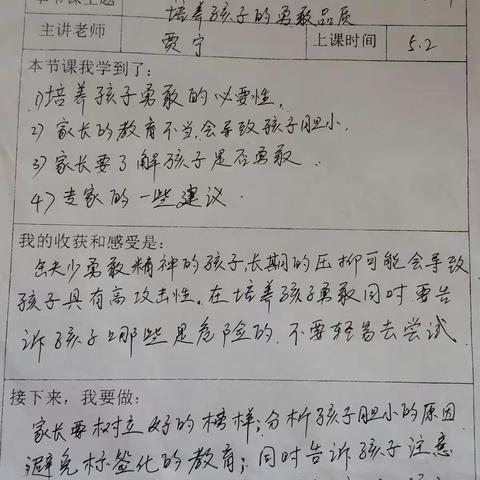 本节课主题
培养孩子的勇敢品质
主讲老师
贾宁
上课时间
5.2
本节课我学到了:
1)培养孩子勇敢的必要性,
2) 家长的教育不当,会导致孩子胆小.
3) 家长要了解孩子是否勇敢.
4) 专家的一些建议.
我的收获和感受是:
缺少勇敢精神的孩子,长期的压抑可能会导致
孩子具有高攻击性。在培养孩子勇敢同时,要告
诉孩子哪些是危险的,不要轻易去尝试.
接下来,我要做:
家长要树立好的榜样;分析孩子胆小的原因
避免标签化的教育;同时告诉孩子注意